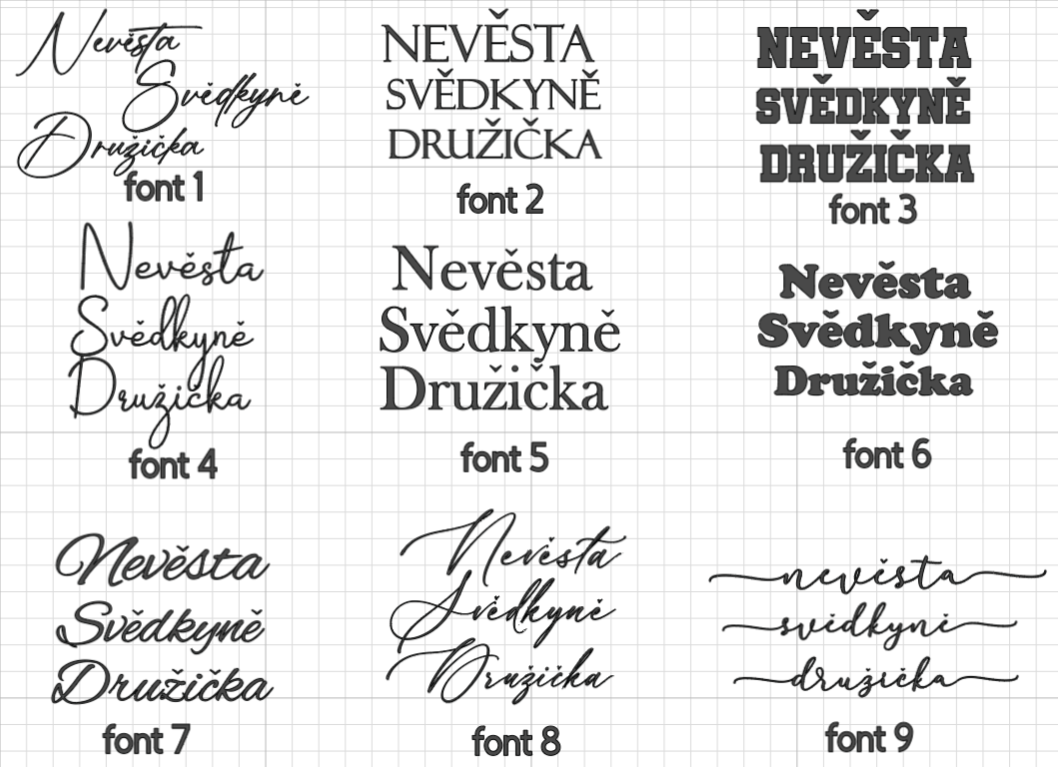 Nevěsta
Svědkyně
Družička
font 1
NEVĚSTA
SVĚDKYNĚ
DRUŽIČKA
font 2
NEVĚSTA
SVĚDKYNĚ
DRUŽIČKA
font 3
Nevěsta
Svědkyně
Družička
font 4
Nevěsta
Svědkyně
Družička
font 5
Nevěsta
Svědkyně
Družička
font 6
Nevěsta
Svědkyně
Družička
font 7
Nevěsta
Svědkyně
Družička
font 8
nevěsta
svědkyně
družička
font 9